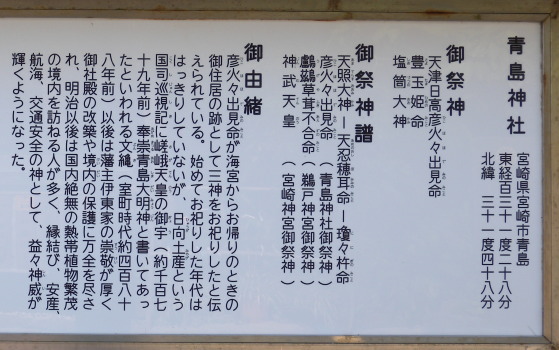 青島神社
宮崎県宮崎市青島
東経百三十一度二十八分
北緯 三十一度四十八分
御祭神
天津日高彦火々出見命
豊玉姫命
塩筒大神
御祭神譜
天照大神ー天忍穂耳命ー瓊々杵命
彦火々出見命(青島神社御祭神)
鸕鷀草葺不合命(鵜戸神宮御祭神)
神武天皇(宮崎神宮御祭神)
御由緒
彦火々出見命が海宮からお帰りのときの
御住居の跡として三神をお祀りしたと伝
えられている。始めてお祀りした年代は
はっきりしていないが、日向土産という
国司巡視記に嵯峨天皇の御宇(約千百七
十九年前)奉崇青島大明神と書いてあっ
たといわれる文縄(室町時代約四百八十
八年前)以後は藩主伊東家の崇敬が厚く
御社殿の改築や境内の保護に万全を尽さ
れ、明治以後は国内絶無の熱帯植物繁茂
の境内を訪ねる人が多く、縁結び、安産、
航海、交通安全の神として、益々神威が
輝くようになった。